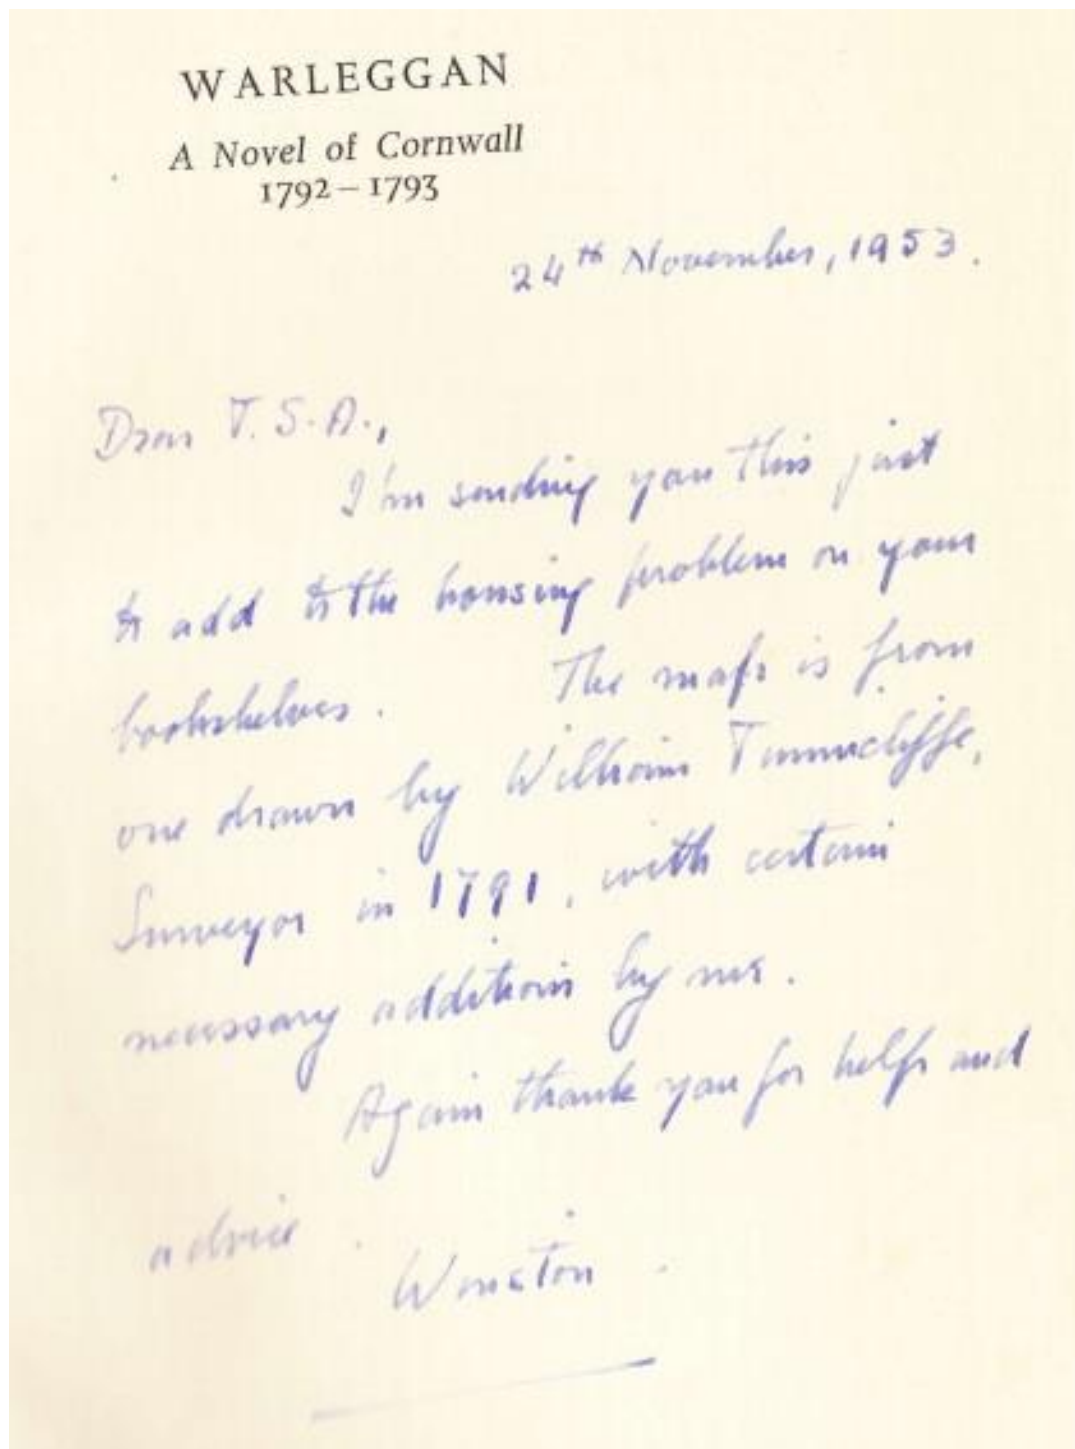 WARLEGGAN
A Novel of Cornwall
1792–1793
24th November, 1953.
Dear T.S.A.,
I'm sending you this just
to add to the housing problem on your
bookshelves. The map is from
one drawn by William Tunnicliffe,
Surveyor in 1791, with certain
necessary additions by me.
Again thank you for help and
advice.
Winston.